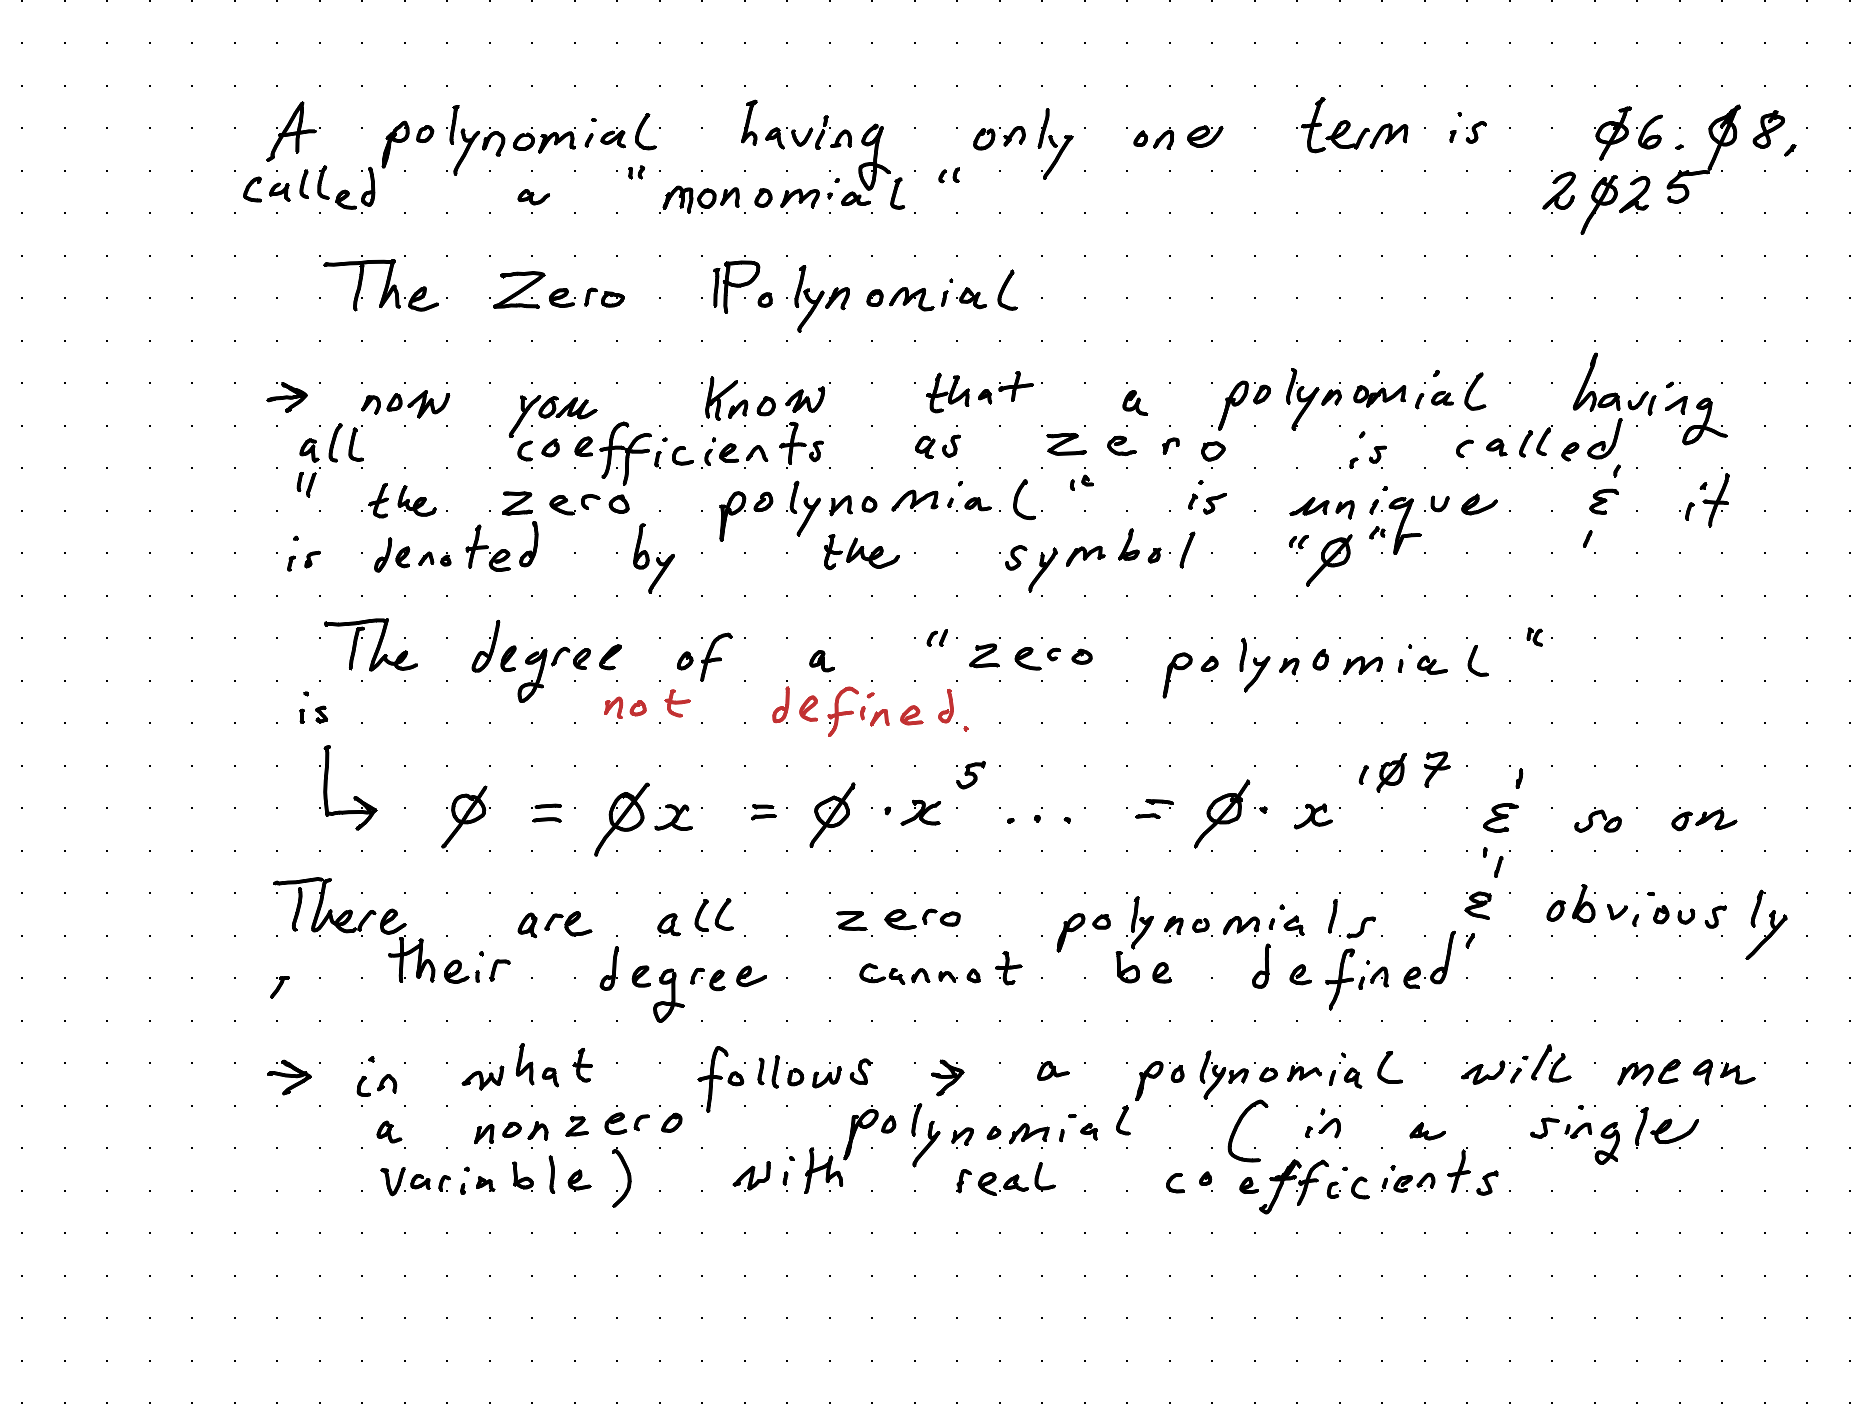 A polynomial having only one term is ø6.ø8,
called a "monomial" 2ø25
The Zero Polynomial
→ now you know that a polynomial having
all coefficients as zero is called
"the zero polynomial" is unique & it
is denoted by the symbol "ø"
The degree of a "zero polynomial"
is not defined.
↳ ø = øx = ø·x⁵ ... = ø·x¹ø⁷ & so on
There are all zero polynomials & obviously
, their degree cannot be defined
→ in what follows → a polynomial will mean
a nonzero polynomial (in a single
variable) with real coefficients